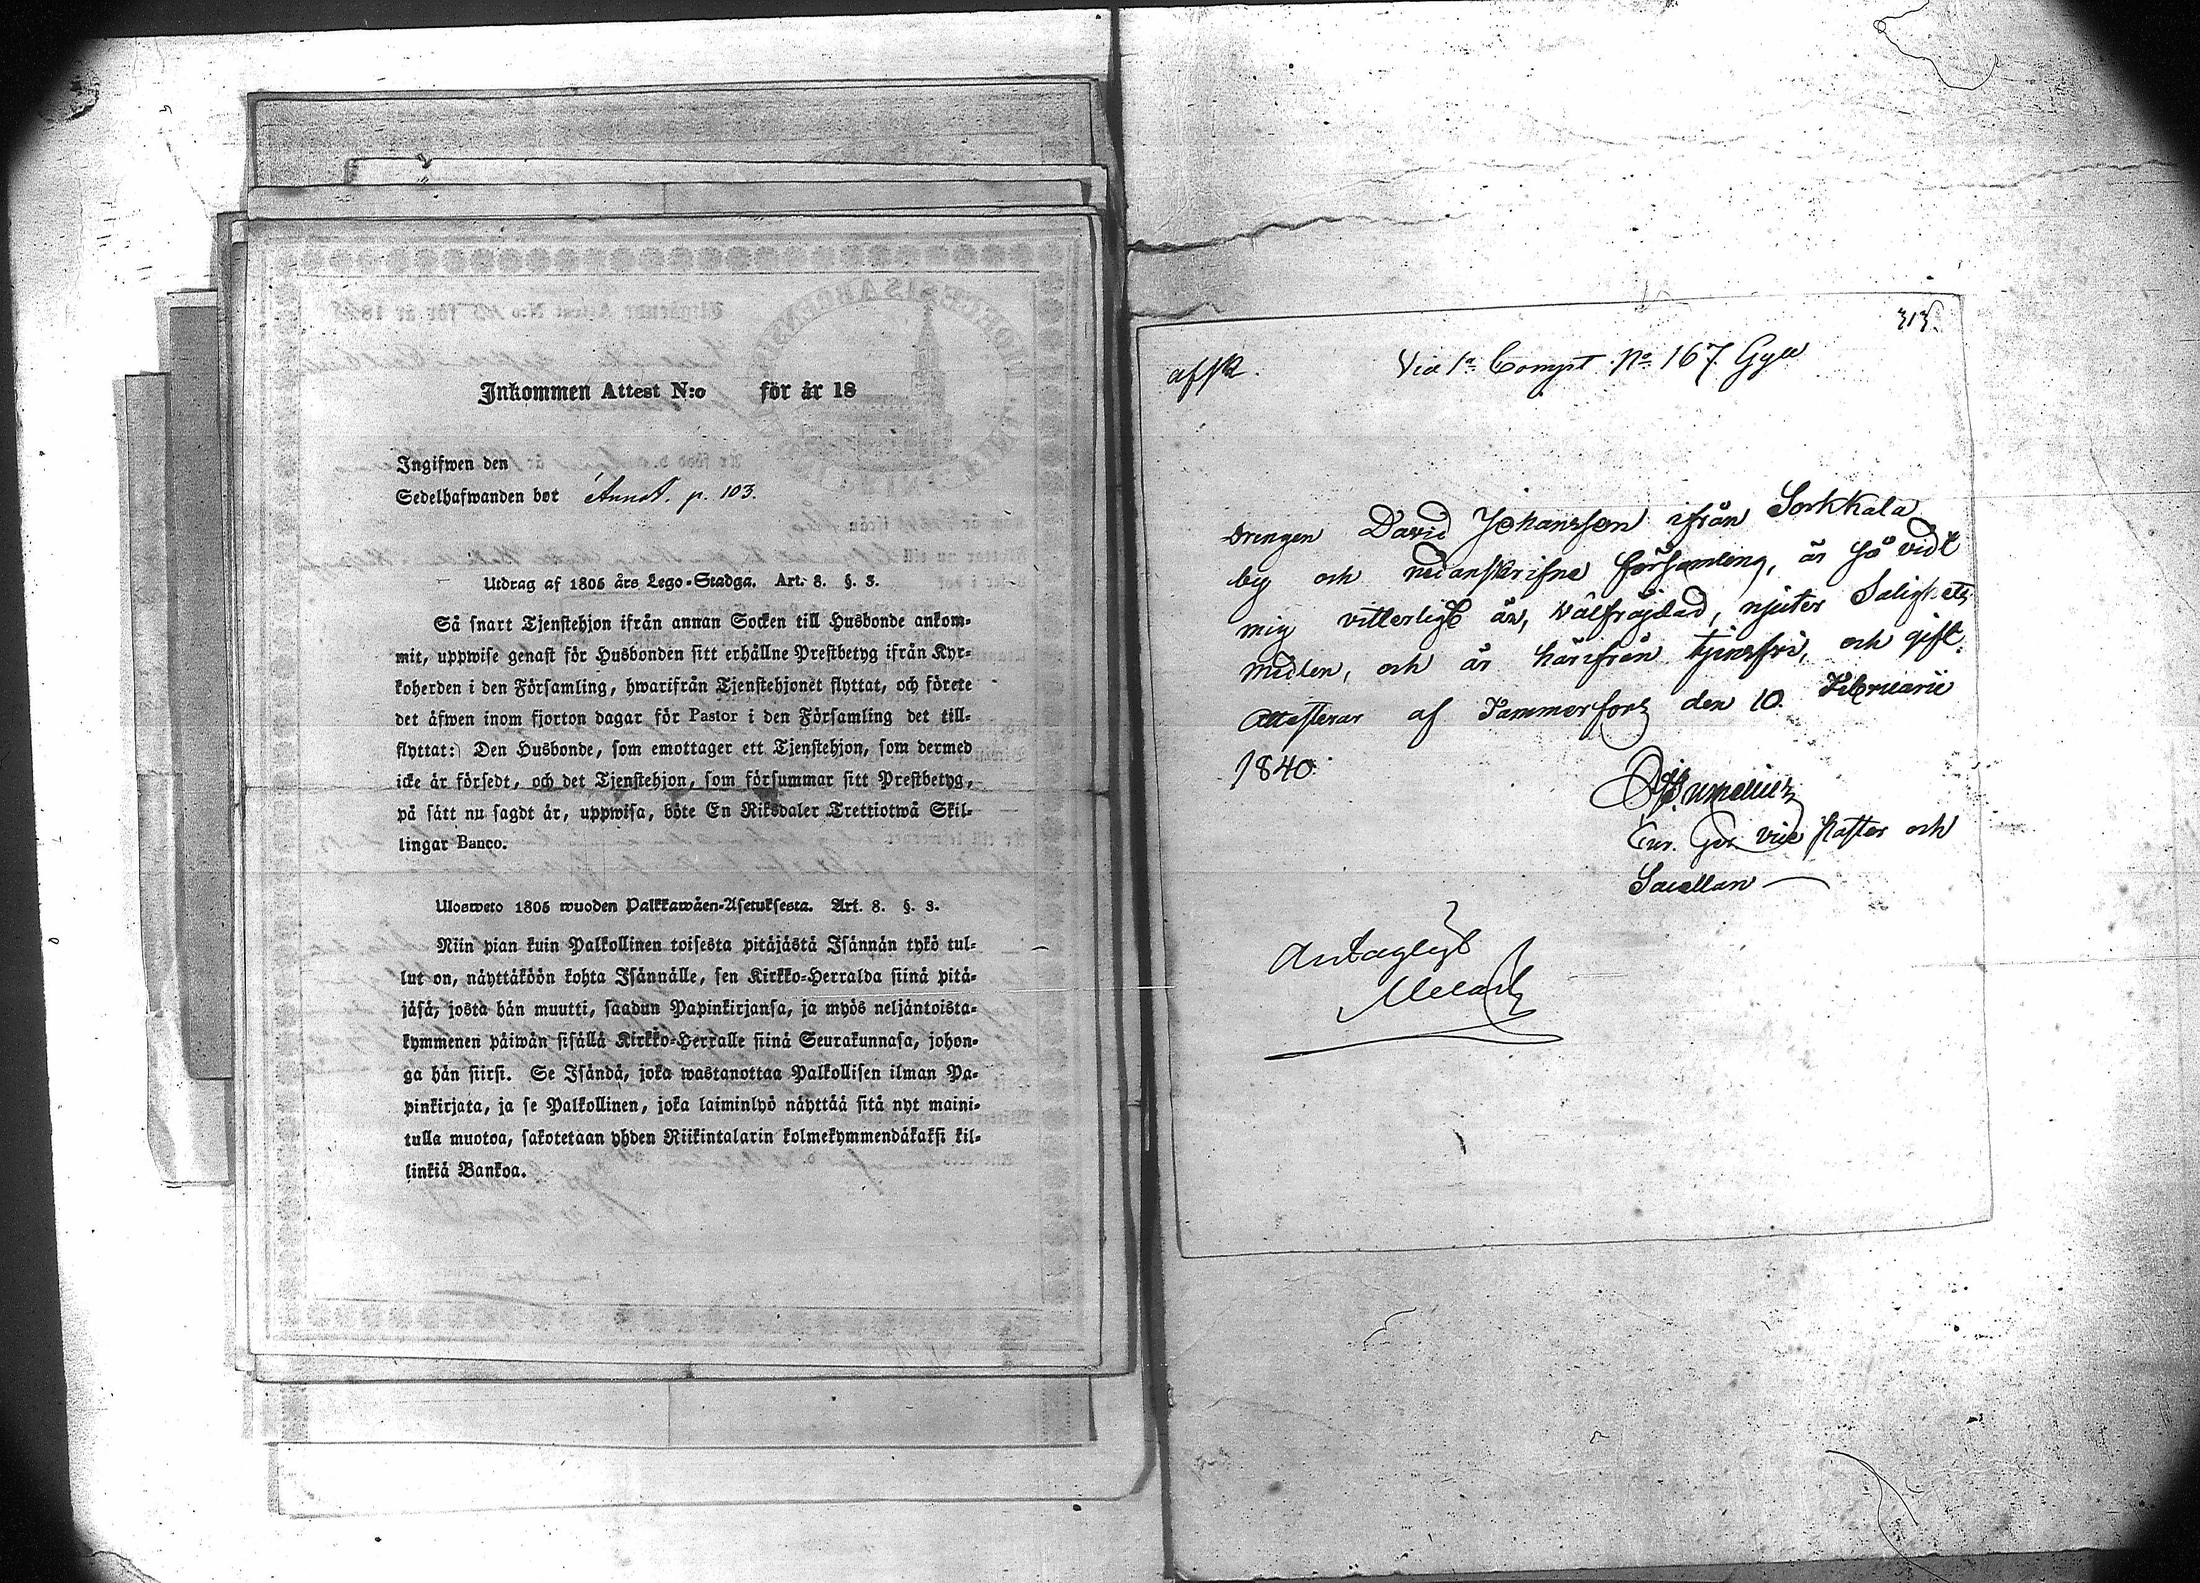 Inkommen Attest N:o för år 18
Ingifwen den
Sedelhafwanden bot Annot. p. 103.
Utdrag af 1805 års Lego-Stadga. Art. 8. §. 3.
Så snart Tjenstehjon ifrån annan Socken till Husbonde ankom-
mit, uppwise genast för Husbonden sitt erhållne Prestbetyg ifrån Kyr-
koherden i den Församling, hwarifrån Tjenstehjonet flyttat, och förete
det äfwen inom fjorton dagar för Pastor i den Församling det till-
flyttat: Den Husbonde, som emottager ett Tjenstehjon, som dermed
icke är försedt, och det Tjenstehjon, som försummar sitt Prestbetyg,
på sätt nu sagdt är, uppwisa, böte En Riksdaler Trettiotwå Skil-
lingar Banco.
Ulosweto 1805 wuoden Palkkawäen-Asetuksesta. Art. 8. §. 3.
Niin pian kuin Palkollinen toisesta pitäjästä Isännän tykö tul-
lut on, näyttäköön kohta Isännälle, sen Kirkko-Herralda siinä pitä-
jäsä, josta hän muutti, saadun Papinkirjansa, ja myös neljäntoista-
kymmenen päiwän sisällä Kirkko-Herralle siinä Seurakunnasa, johon-
ga hän siirsi. Se Isändä, joka wastanottaa Palkollisen ilman Pa-
pinkirjata, ja se Palkollinen, joka laiminlyö näyttää sitä nyt maini-
tulla muotoa, sakotetaan yhden Riikintalarin kolmekymmendäkaksi kil-
linkiä Bankoa.
313.
afsk. Vid 1a Compt No 167 Gyll
Drengen David Johansson ifrån Sorkkala
by och nedanskrifne församling, är så vidt
mig vitterligt är, välfräjdad, njuter Salighets
medlen, och är härifrån tjenstfri, och gift.
Attesterar af Tammerfors den 10 Februarii
1840.
vice Pastor och
Sacellan
Antagligt